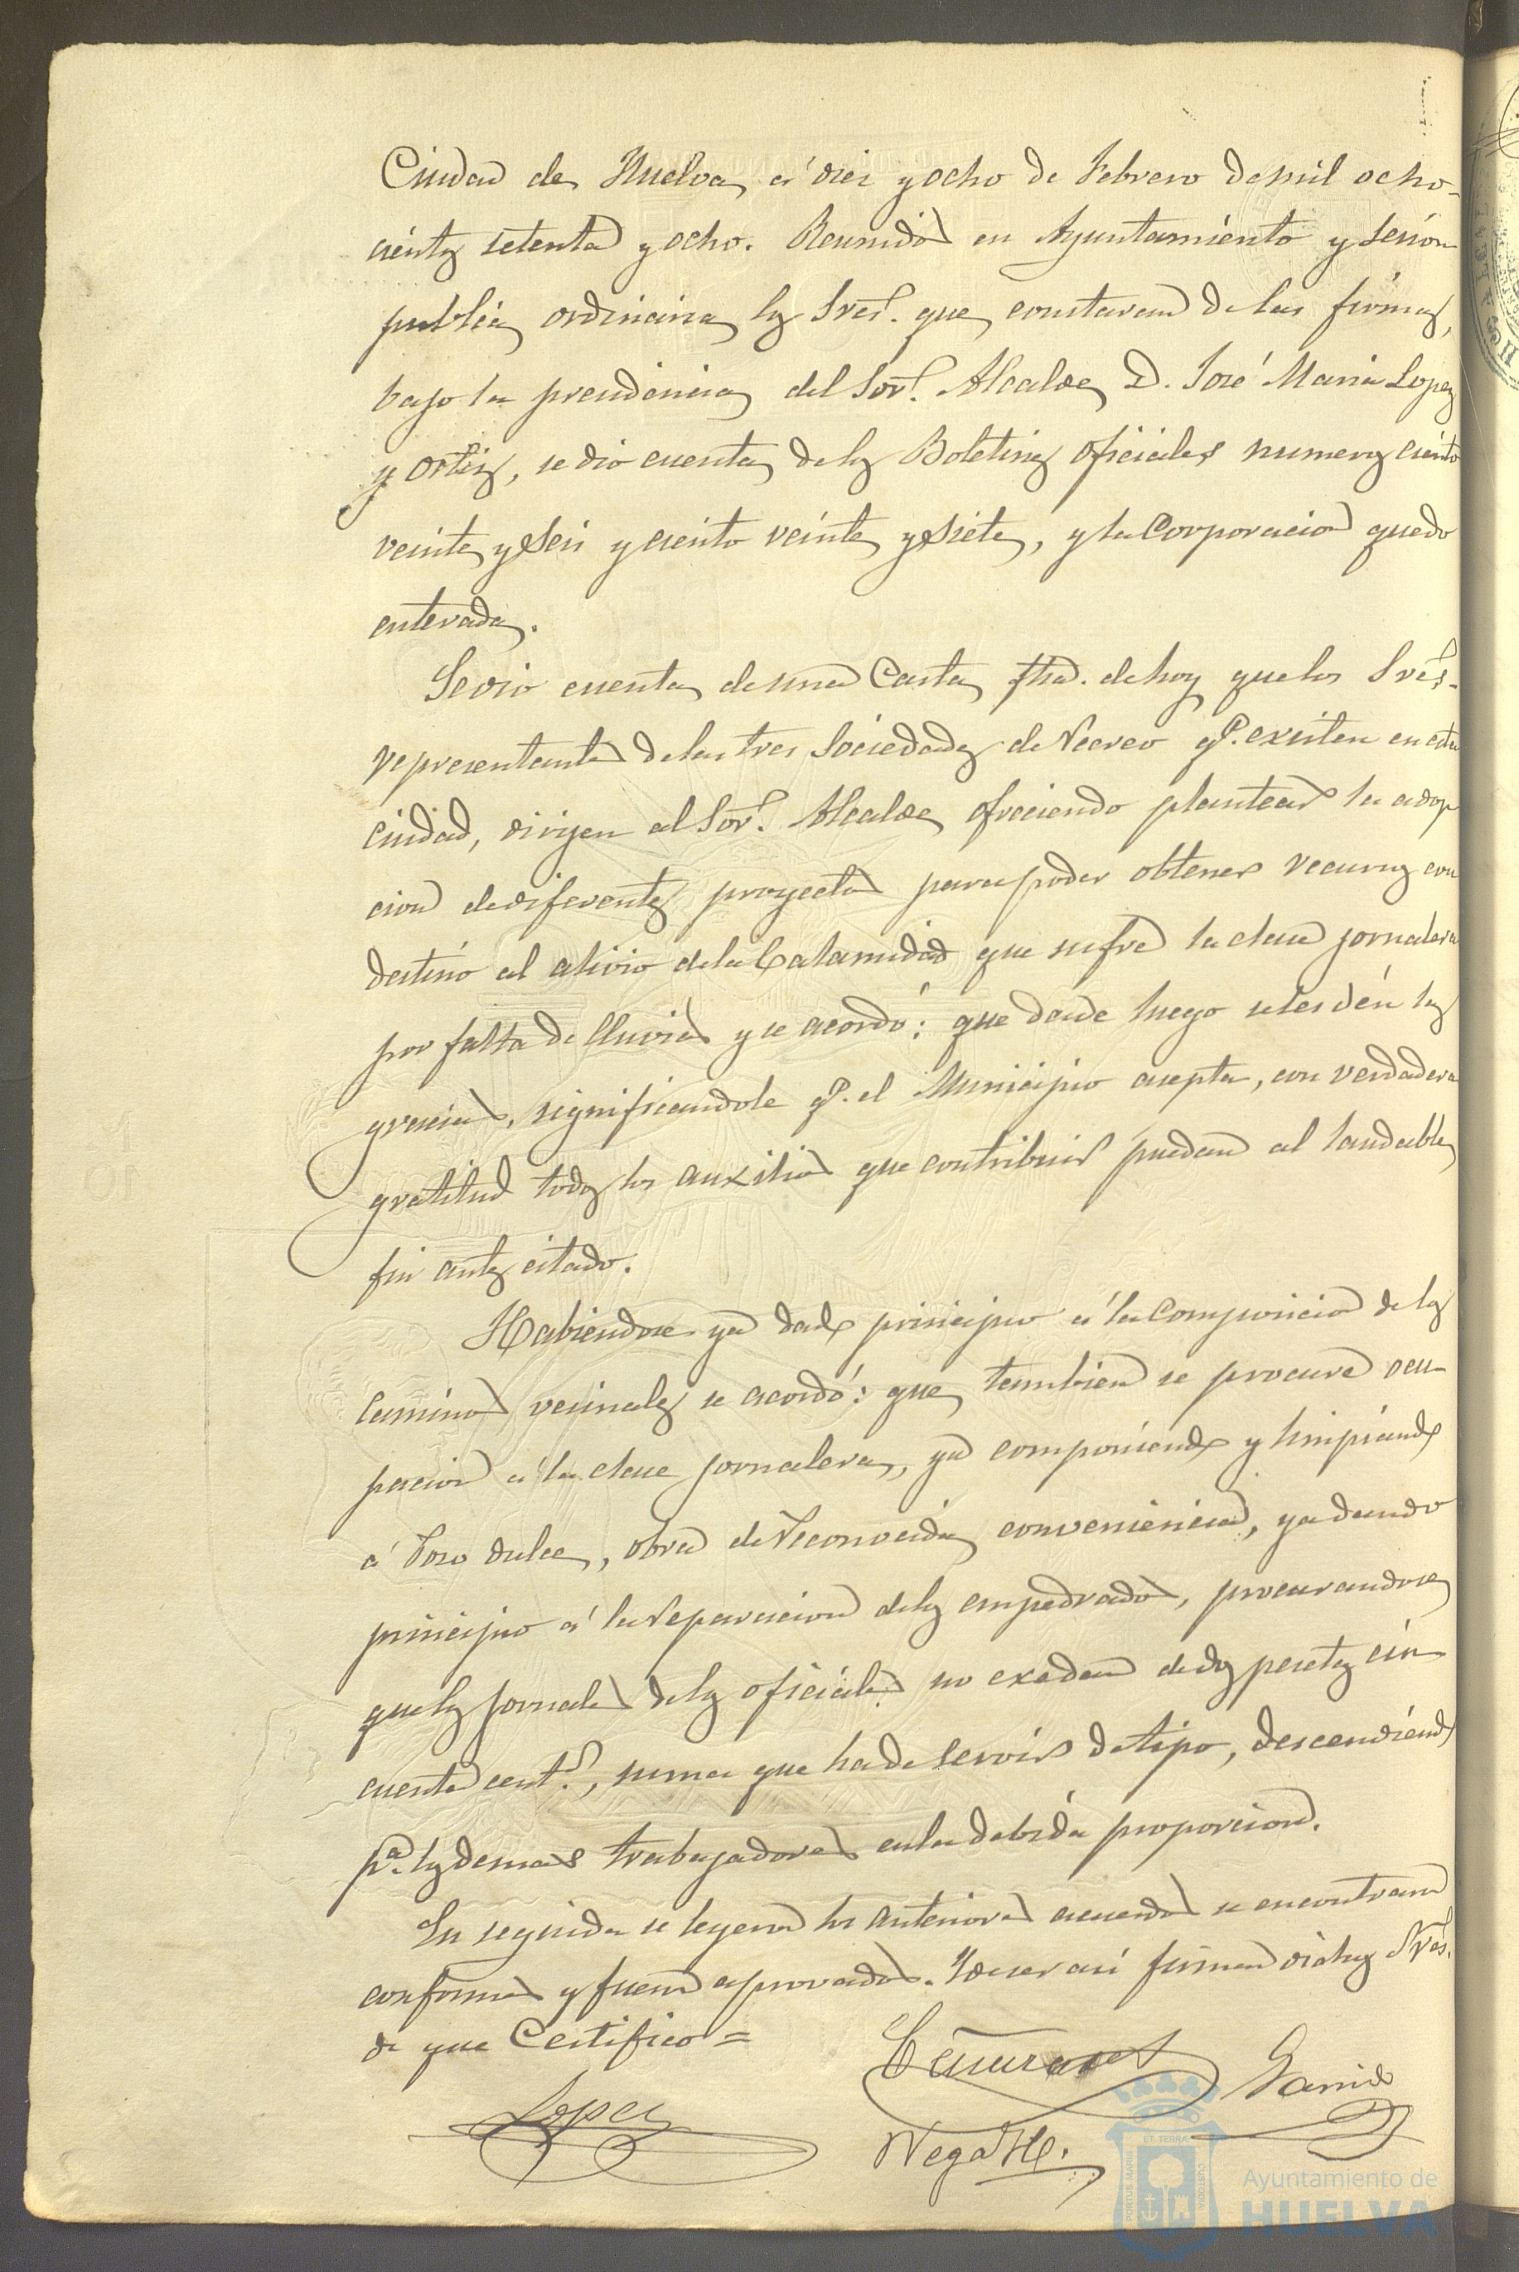 Ciudad de Huelva á diez y ocho de Febrero de mil ocho-
cientos setenta y ocho. Reunidos en Ayuntamiento y sesión
publica ordinaria los Sres. que constaran de las firmas,
bajo la presidencia del Sor. Alcalde D. José Maria Lopez
y Ortiz, se dio cuenta de los Boletines oficiales numeros ciento
veinte y seis y ciento veinte y siete, y la Corporacion quedo
enterada.
Se dio cuenta de una Carta fha. de hoy que los Sres.
representantes de las tres Sociedades de Recreo qe. existen en esta
Ciudad, dirijen al Sor. Alcalde ofreciendo plantear la adop
cion de diferentes proyectos para poder obtener recursos con
destino al alivio de la Calamidad que sufre la clase jornalera
por falta de lluvias y se acordó: que desde luego se les dén las
gracias, significandole qe. el Municipio acepta, con verdadera
gratitud todos los auxilios que contribuir puedan al laudable
fin antes citado.
Habiendose ya dado principio á la composicion de los
Caminos vecinales se acordó: que tambien se procure ocu-
pacion á la clase jornalera, ya componiendo y limpiando
á Pozo dulce, obra de reconocida conveniencia, ya dando
principio á la reparacion de los empedrados, procurandose
que los jornales de los oficiales no exedan de dos pesetas cin
cuenta cent.s, suma que ha de servir de tipo, descendiendo
pa. los demas trabajadores en la debida proporcion.
En seguida se leyeron los anteriores acuerdos se encontraron
conformes y fueron aprovados. Y de ser asi firman dichos Sres.
de que Certifico =
Lopez
Garrido
Vega H.
Ayuntamiento de
HUELVA